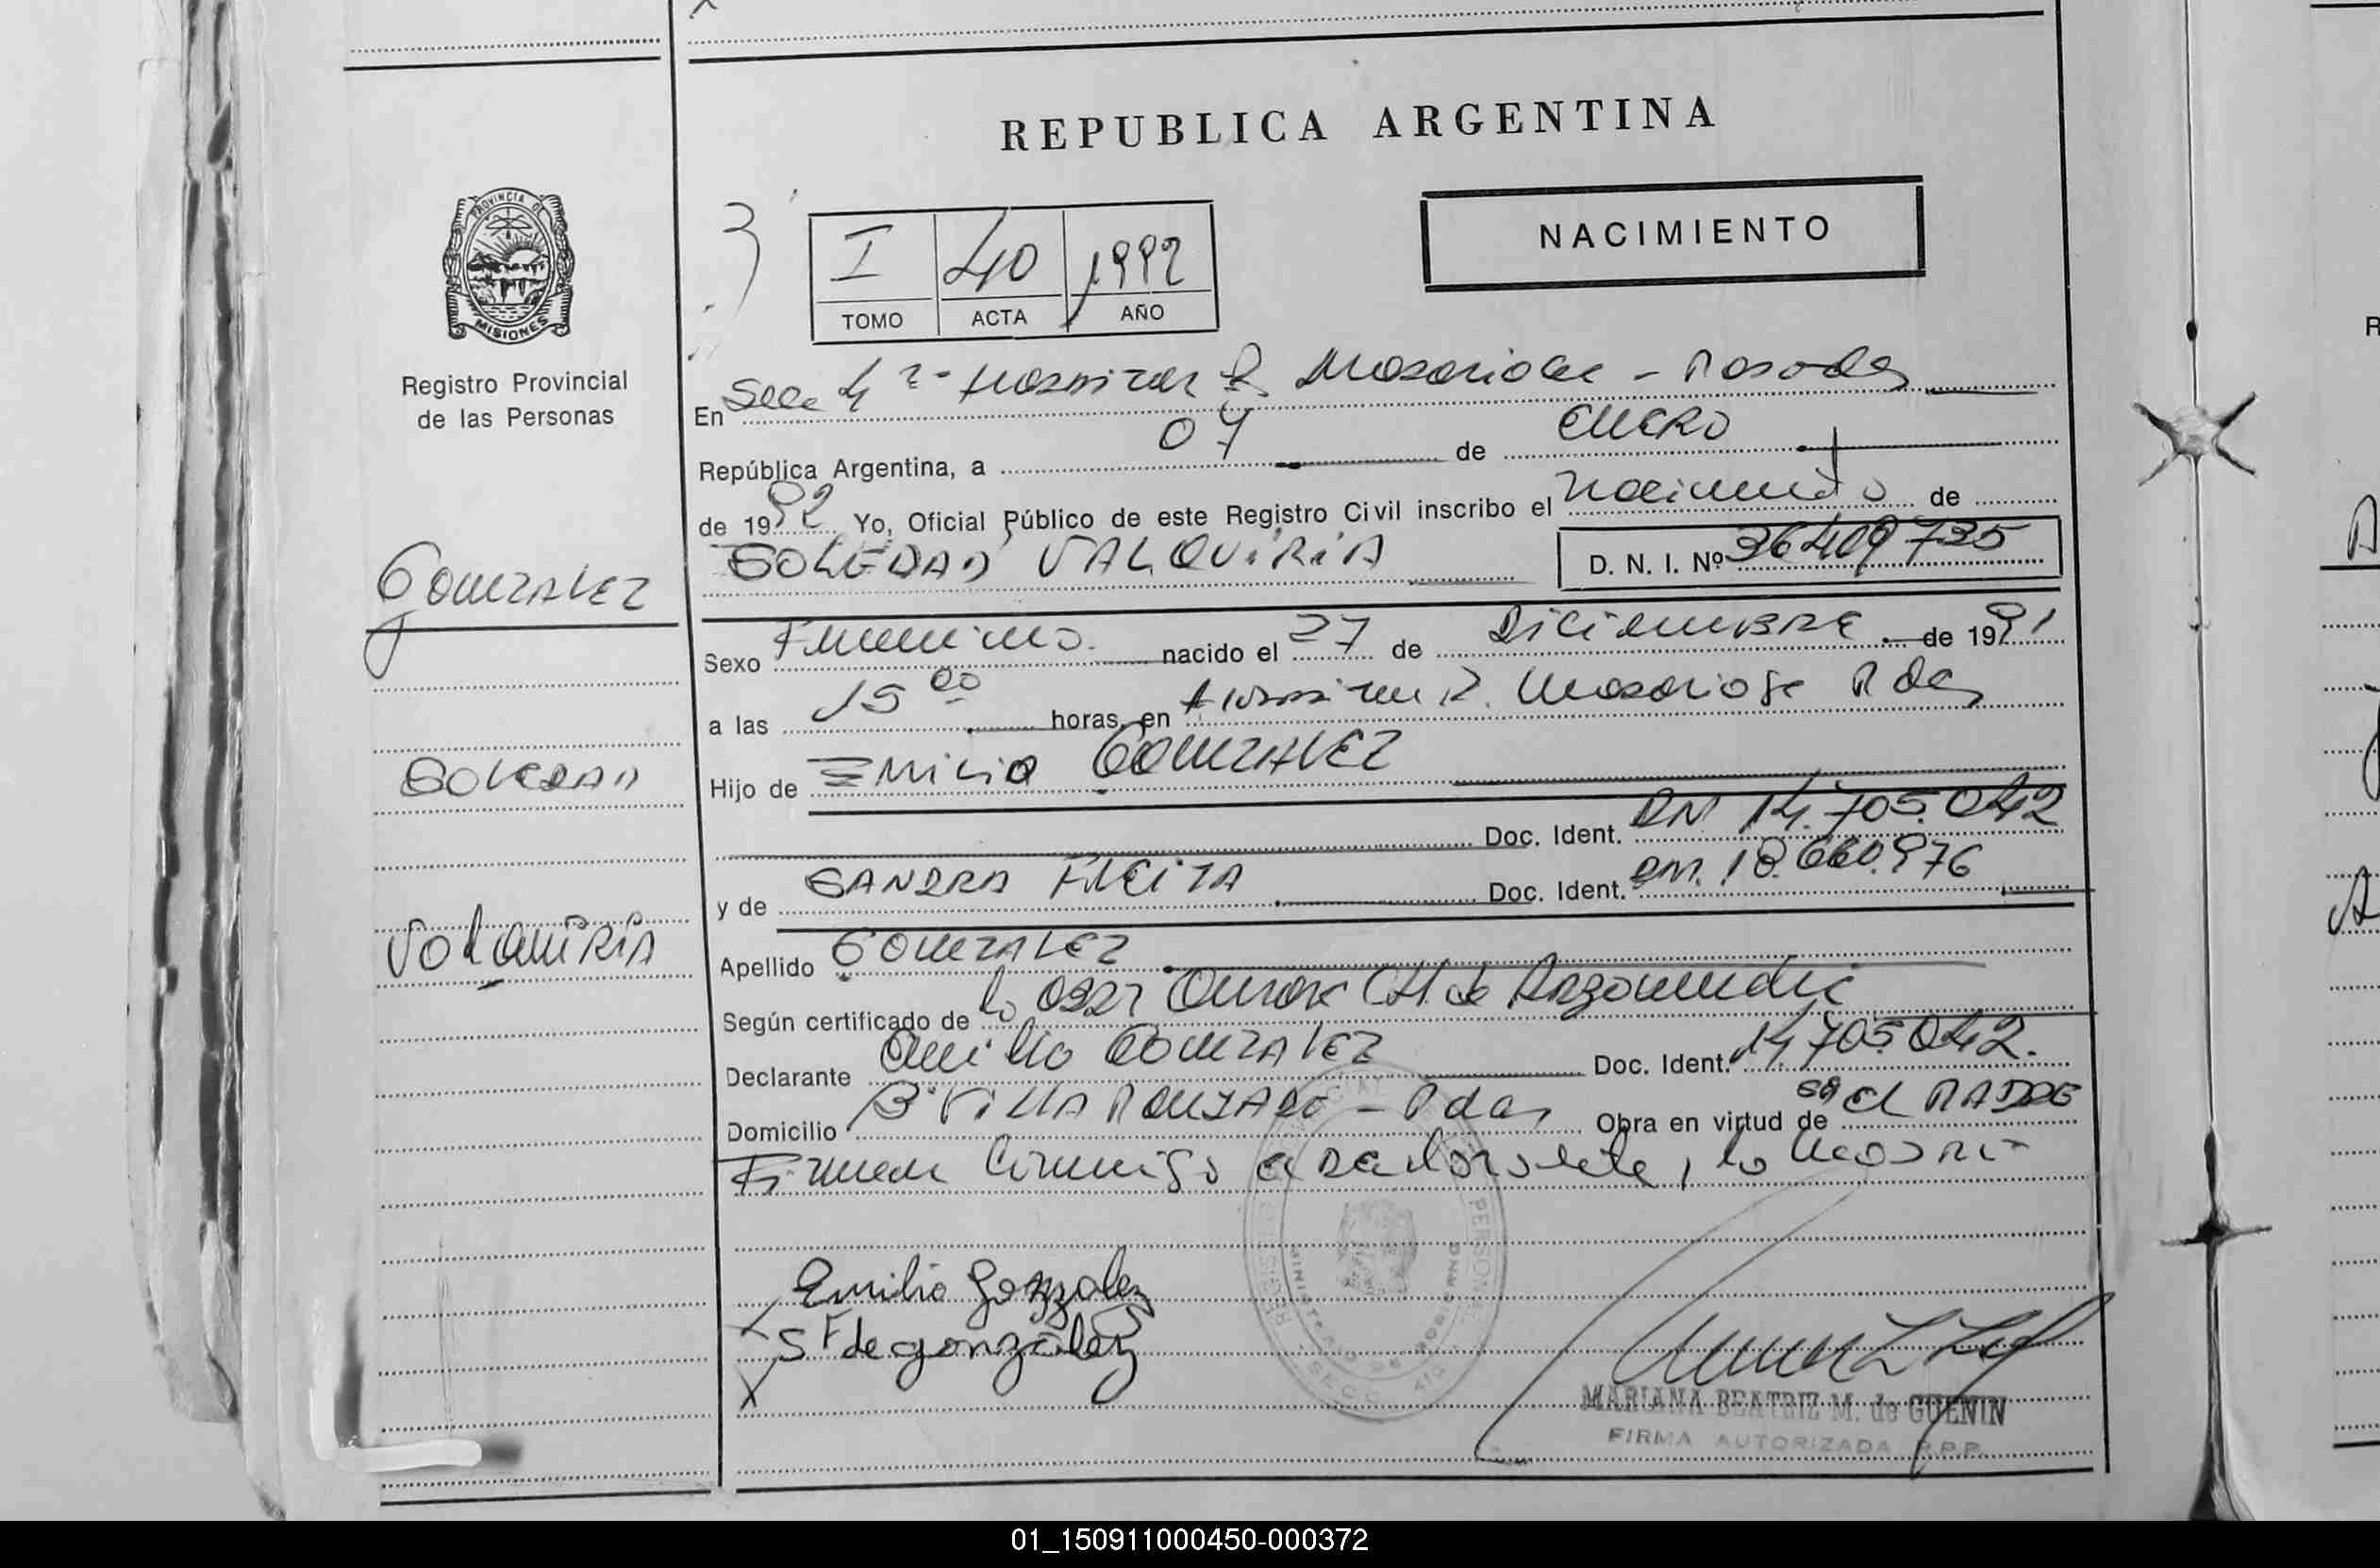 REPUBLICA ARGENTINA
NACIMIENTO
I 40 1992
TOMO ACTA AÑO
PROVINCIA DE
MISIONES
Registro Provincial
de las Personas
En Secc 4ª Hospital R. Madariaga - Posadas
República Argentina, a 07 de ENERO
de 1992 Yo, Oficial Público de este Registro Civil inscribo el Nacimiento de
SOLEDAD VALQUIRIA D. N. I. Nº 36409735
GONZALEZ
Sexo Femenino. nacido el 27 de DICIEMBRE de 1991
a las 15 00 horas, en Hospital R. Madariaga Pdas
SOLEDAD
Hijo de EMILIO GONZALEZ
Doc. Ident. DNI 14.705.042
y de SANDRA FLEITA Doc. Ident. DNI. 18.660.976
VALQUIRIA
Apellido GONZALEZ
Según certificado de la Obst de
Declarante Emilio GONZALEZ Doc. Ident. 14.705.042.
Domicilio Bº VILLA - Pdas Obra en virtud de ser el PADRE
Firman conmigo el declarante, la madre
Emilio Gonzalez
X S F de gonzalez
X
MARIANA BEATRIZ M. de GUENIN
FIRMA AUTORIZADA R.P.P.
01_150911000450-000372